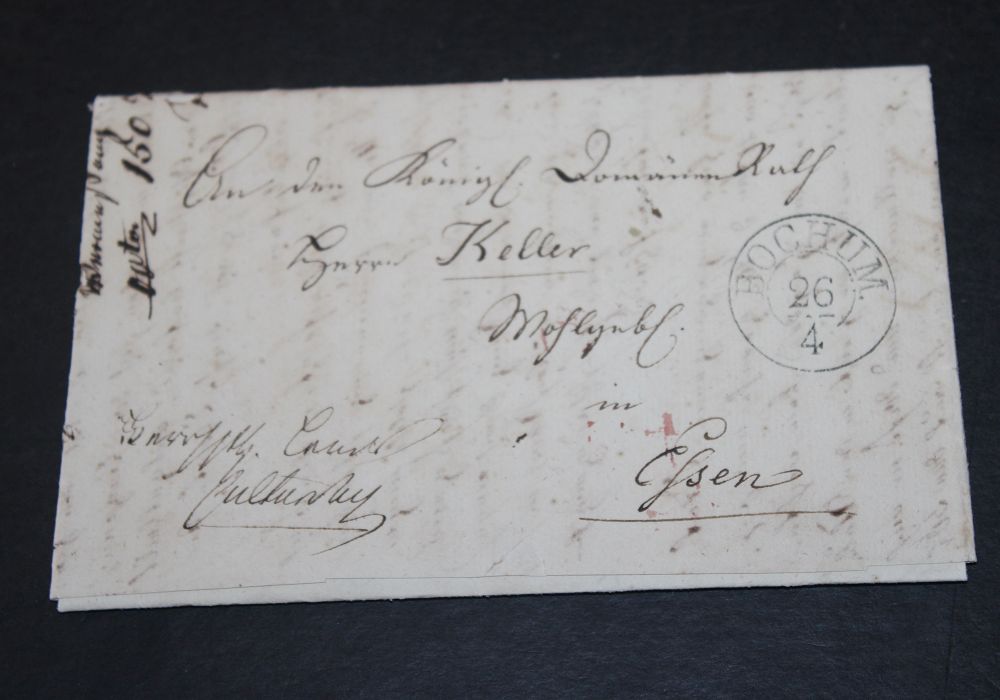 An den Königl. Domänen Rath
Herrn Keller
Wohlgeb.
in
Essen
BOCHUM
26
4
Herrschtl.
150